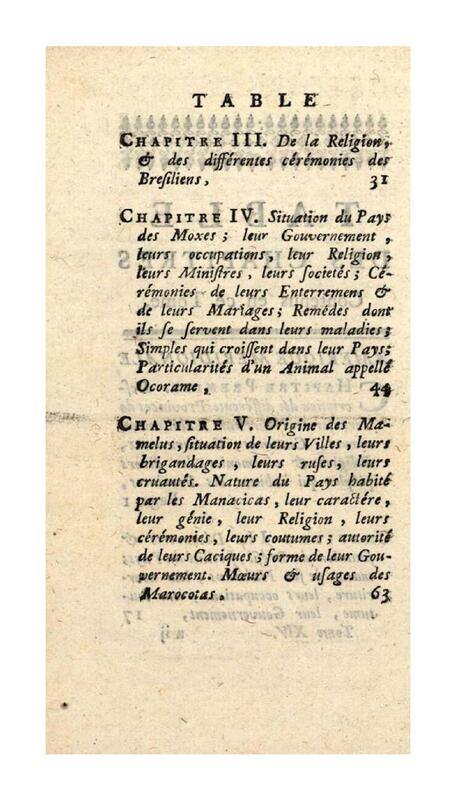 TABLE
CHAPITRE III. De la Religion,
& des différentes cérémonies des
Bresiliens, 31
CHAPITRE IV. Situation du Pays
des Moxes; leur Gouvernement,
leurs occupations, leur Religion,
leurs Ministres, leurs societés; Cé-
rémonies de leurs Enterremens &
de leurs Mariages; Remédes dont
ils se servent dans leurs maladies;
Simples qui croissent dans leur Pays;
Particularités d'un Animal appellé
Ocorame, 44
CHAPITRE V. Origine des Ma-
melus, situation de leurs Villes, leurs
brigandages, leurs ruses, leurs
cruautés. Nature du Pays habité
par les Manacicas, leur caractére,
leur génie, leur Religion, leurs
cérémonies, leurs coutumes; autorité
de leurs Caciques; forme de leur Gou-
vernement. Mœurs & usages des
Marocotas. 63